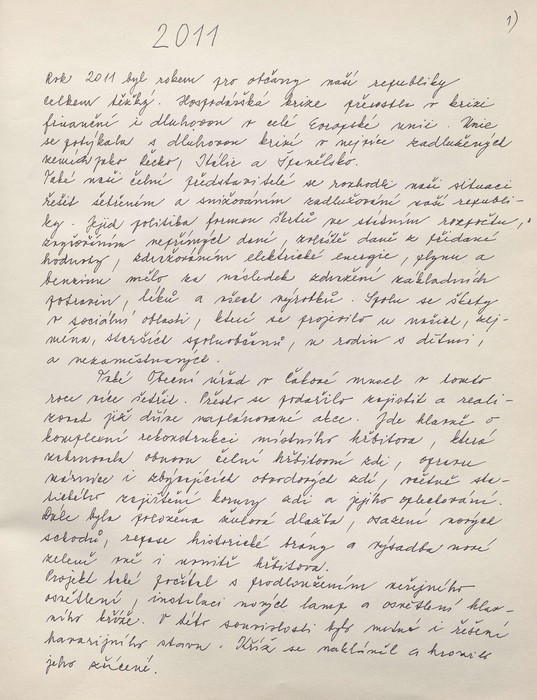 1)
2011
Rok 2011 byl rokem pro občany naší republiky
celkem těžký. Hospodářská krize přerostla v krizi
finanční i dluhovou v celé Evropské unii. Unie
se potýkala s dluhovou krizí v nejvíce zadlužených
zemích jako Řecko, Itálie a Španělsko.
Také naši čelní představitelé se rozhodli naši situaci
řešit šetřením a snižováním zadlužování naší republi-
ky. Jejich politika formou škrtů ve státním rozpočtu,
zvýšením nepřímých daní, zvláště daně z přidané
hodnoty, zdražováním elektrické energie, plynu a
benzinu mělo za následek zdražení základních
potravin, léků a všech výrobků. Spolu se škrty
v sociální oblasti, které se projevilo u našich, zej-
ména, starších spoluobčanů, u rodin s dětmi,
a nezaměstnaných.
Také Obecní úřad v Čakové musel v tomto
roce více šetřit. Přesto se podařilo zajistit a reali-
zovat již dříve naplánované akce. Jde hlavně o
komplexní rekonstrukci místního hřbitova, která
zahrnovala obnovu čelní hřbitovní zdi, opravu
márnice i zbývajících obvodových zdí, včetně sta-
tického zajištění koruny zdi a jejího oplechování.
Dále byla položena žulová dlažba, osazení nových
schodů, repase historické brány a výsadba nové
zeleně vně i uvnitř hřbitova.
Projekt také počítal s prodloužením veřejného
osvětlení, instalací nových lamp a osvětlení hlav-
ního kříže. V této souvislosti bylo nutné i řešení
havarijního stavu. Kříž se nakláněl a hrozilo
jeho zřícení.